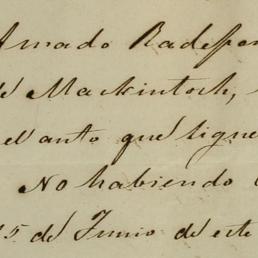 Amado Radepon
de Mackintosh,
el auto que sigue
No habiendo
15 de Junio de este